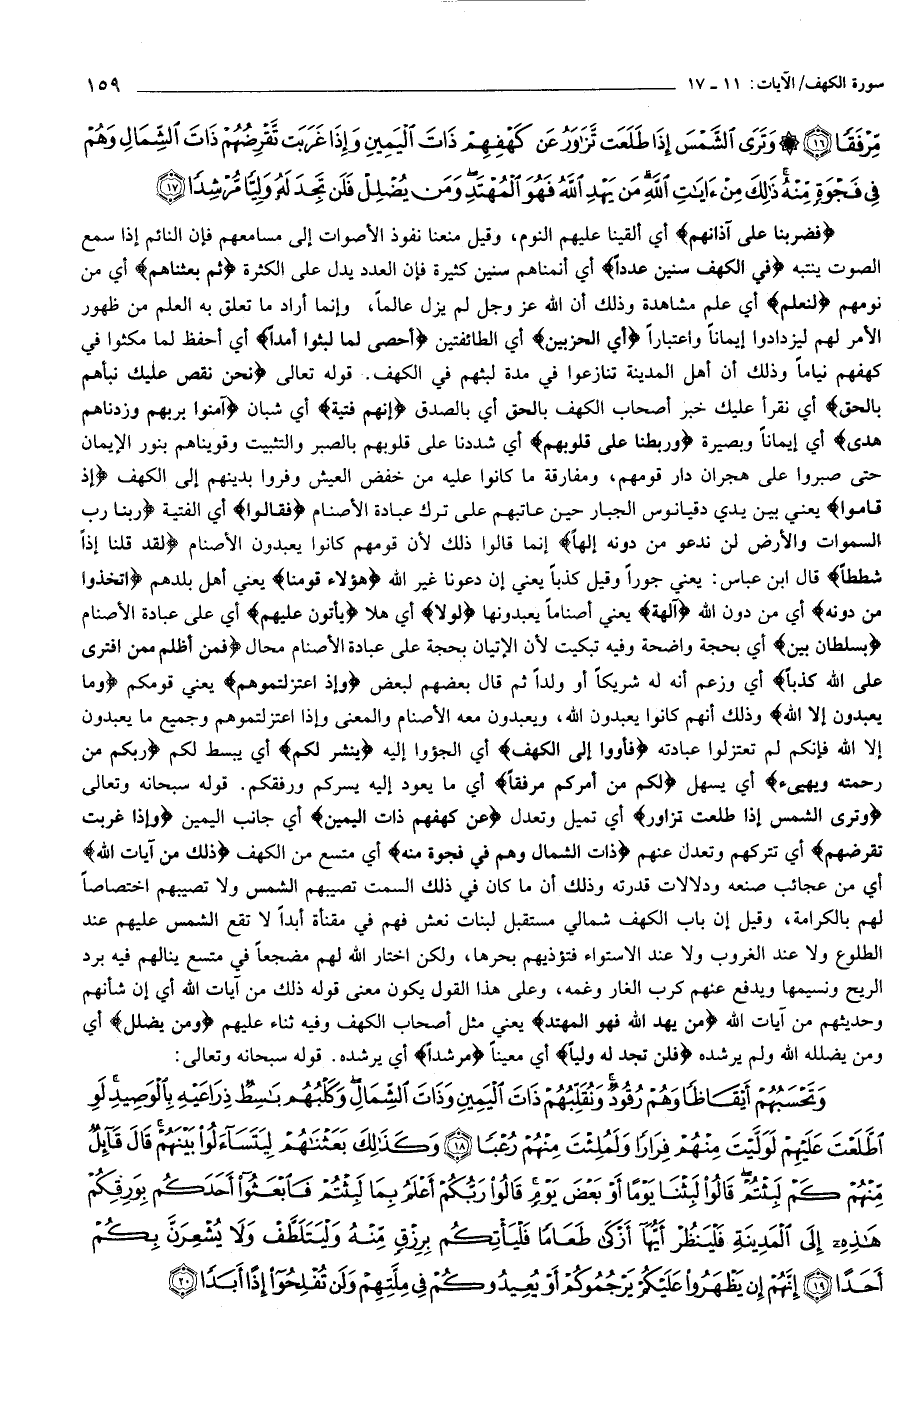 سورة الكهف/ الآيات: ١١ ـ ١٧ ١٥٩
مِّرْفَقًا ﴿١٦﴾ ۞ وَتَرَى ٱلشَّمْسَ إِذَا طَلَعَت تَّزَٰوَرُ عَن كَهْفِهِمْ ذَاتَ ٱلْيَمِينِ وَإِذَا غَرَبَت تَّقْرِضُهُمْ ذَاتَ ٱلشِّمَالِ وَهُمْ
فِى فَجْوَةٍ مِّنْهُ ۚ ذَٰلِكَ مِنْ ءَايَٰتِ ٱللَّهِ ۗ مَن يَهْدِ ٱللَّهُ فَهُوَ ٱلْمُهْتَدِ ۖ وَمَن يُضْلِلْ فَلَن تَجِدَ لَهُۥ وَلِيًّا مُّرْشِدًا ﴿١٧﴾
﴿فضربنا على آذانهم﴾ أي ألقينا عليهم النوم، وقيل منعنا نفوذ الأصوات إلى مسامعهم فإن النائم إذا سمع
الصوت ينتبه ﴿في الكهف سنين عدداً﴾ أي أنمناهم سنين كثيرة فإن العدد يدل على الكثرة ﴿ثم بعثناهم﴾ أي من
نومهم ﴿لنعلم﴾ أي علم مشاهدة وذلك أن الله عز وجل لم يزل عالماً، وإنما أراد ما تعلق به العلم من ظهور
الأمر لهم ليزدادوا إيماناً واعتباراً ﴿أي الحزبين﴾ أي الطائفتين ﴿أحصى لما لبثوا أمداً﴾ أي أحفظ لما مكثوا في
كهفهم نياماً وذلك أن أهل المدينة تنازعوا في مدة لبثهم في الكهف. قوله تعالى ﴿نحن نقص عليك نبأهم
بالحق﴾ أي نقرأ عليك خبر أصحاب الكهف بالحق أي بالصدق ﴿إنهم فتية﴾ أي شبان ﴿آمنوا بربهم وزدناهم
هدى﴾ أي إيماناً وبصيرة ﴿وربطنا على قلوبهم﴾ أي شددنا على قلوبهم بالصبر والتثبيت وقويناهم بنور الإيمان
حتى صبروا على هجران دار قومهم، ومفارقة ما كانوا عليه من خفض العيش وفروا بدينهم إلى الكهف ﴿إذ
قاموا﴾ يعني بين يدي دقيانوس الجبار حين عاتبهم على ترك عبادة الأصنام ﴿فقالوا﴾ أي الفتية ﴿ربنا رب
السموات والأرض لن ندعو من دونه إلهاً﴾ إنما قالوا ذلك لأن قومهم كانوا يعبدون الأصنام ﴿لقد قلنا إذاً
شططاً﴾ قال ابن عباس: يعني جوراً وقيل كذباً يعني إن دعونا غير الله ﴿هؤلاء قومنا﴾ يعني أهل بلدهم ﴿اتخذوا
من دونه﴾ أي من دون الله ﴿آلهة﴾ يعني أصناماً يعبدونها ﴿لولا﴾ أي هلا ﴿يأتون عليهم﴾ أي على عبادة الأصنام
﴿بسلطان بين﴾ أي بحجة واضحة وفيه تبكيت لأن الإتيان بحجة على عبادة الأصنام محال ﴿فمن أظلم ممن افترى
على الله كذباً﴾ أي وزعم أنه له شريكاً أو ولداً ثم قال بعضهم لبعض ﴿وإذ اعتزلتموهم﴾ يعني قومكم ﴿وما
يعبدون إلا الله﴾ وذلك أنهم كانوا يعبدون الله، ويعبدون معه الأصنام والمعنى وإذا اعتزلتموهم وجميع ما يعبدون
إلا الله فإنكم لم تعتزلوا عبادته ﴿فأووا إلى الكهف﴾ أي الجؤوا إليه ﴿ينشر لكم﴾ أي يبسط لكم ﴿ربكم من
رحمته ويهيىء﴾ أي يسهل ﴿لكم من أمركم مرفقاً﴾ أي ما يعود إليه يسركم ورفقكم. قوله سبحانه وتعالى
﴿وترى الشمس إذا طلعت تزاور﴾ أي تميل وتعدل ﴿عن كهفهم ذات اليمين﴾ أي جانب اليمين ﴿وإذا غربت
تقرضهم﴾ أي تتركهم وتعدل عنهم ﴿ذات الشمال وهم في فجوة منه﴾ أي متسع من الكهف ﴿ذلك من آيات الله﴾
أي من عجائب صنعه ودلالات قدرته وذلك أن ما كان في ذلك السمت تصيبهم الشمس ولا تصيبهم اختصاصاً
لهم بالكرامة، وقيل إن باب الكهف شمالي مستقبل لبنات نعش فهم في مقنأة أبداً لا تقع الشمس عليهم عند
الطلوع ولا عند الغروب ولا عند الاستواء فتؤذيهم بحرها، ولكن اختار الله لهم مضجعاً في متسع ينالهم فيه برد
الريح ونسيمها ويدفع عنهم كرب الغار وغمه، وعلى هذا القول يكون معنى قوله ذلك من آيات الله أي إن شأنهم
وحديثهم من آيات الله ﴿من يهد الله فهو المهتد﴾ يعني مثل أصحاب الكهف وفيه ثناء عليهم ﴿ومن يضلل﴾ أي
ومن يضلله الله ولم يرشده ﴿فلن تجد له ولياً﴾ أي معيناً ﴿مرشداً﴾ أي يرشده. قوله سبحانه وتعالى:
وَتَحْسَبُهُمْ أَيْقَاظًا وَهُمْ رُقُودٌ ۚ وَنُقَلِّبُهُمْ ذَاتَ ٱلْيَمِينِ وَذَاتَ ٱلشِّمَالِ ۖ وَكَلْبُهُم بَٰسِطٌ ذِرَاعَيْهِ بِٱلْوَصِيدِ ۚ لَوِ
ٱطَّلَعْتَ عَلَيْهِمْ لَوَلَّيْتَ مِنْهُمْ فِرَارًا وَلَمُلِئْتَ مِنْهُمْ رُعْبًا ﴿١٨﴾ وَكَذَٰلِكَ بَعَثْنَٰهُمْ لِيَتَسَآءَلُوا۟ بَيْنَهُمْ ۚ قَالَ قَآئِلٌ
مِّنْهُمْ كَمْ لَبِثْتُمْ ۖ قَالُوا۟ لَبِثْنَا يَوْمًا أَوْ بَعْضَ يَوْمٍ ۚ قَالُوا۟ رَبُّكُمْ أَعْلَمُ بِمَا لَبِثْتُمْ فَٱبْعَثُوٓا۟ أَحَدَكُم بِوَرِقِكُمْ
هَٰذِهِۦٓ إِلَى ٱلْمَدِينَةِ فَلْيَنظُرْ أَيُّهَآ أَزْكَىٰ طَعَامًا فَلْيَأْتِكُم بِرِزْقٍ مِّنْهُ وَلْيَتَلَطَّفْ وَلَا يُشْعِرَنَّ بِكُمْ
أَحَدًا ﴿١٩﴾ إِنَّهُمْ إِن يَظْهَرُوا۟ عَلَيْكُمْ يَرْجُمُوكُمْ أَوْ يُعِيدُوكُمْ فِى مِلَّتِهِمْ وَلَن تُفْلِحُوٓا۟ إِذًا أَبَدًا ﴿٢٠﴾